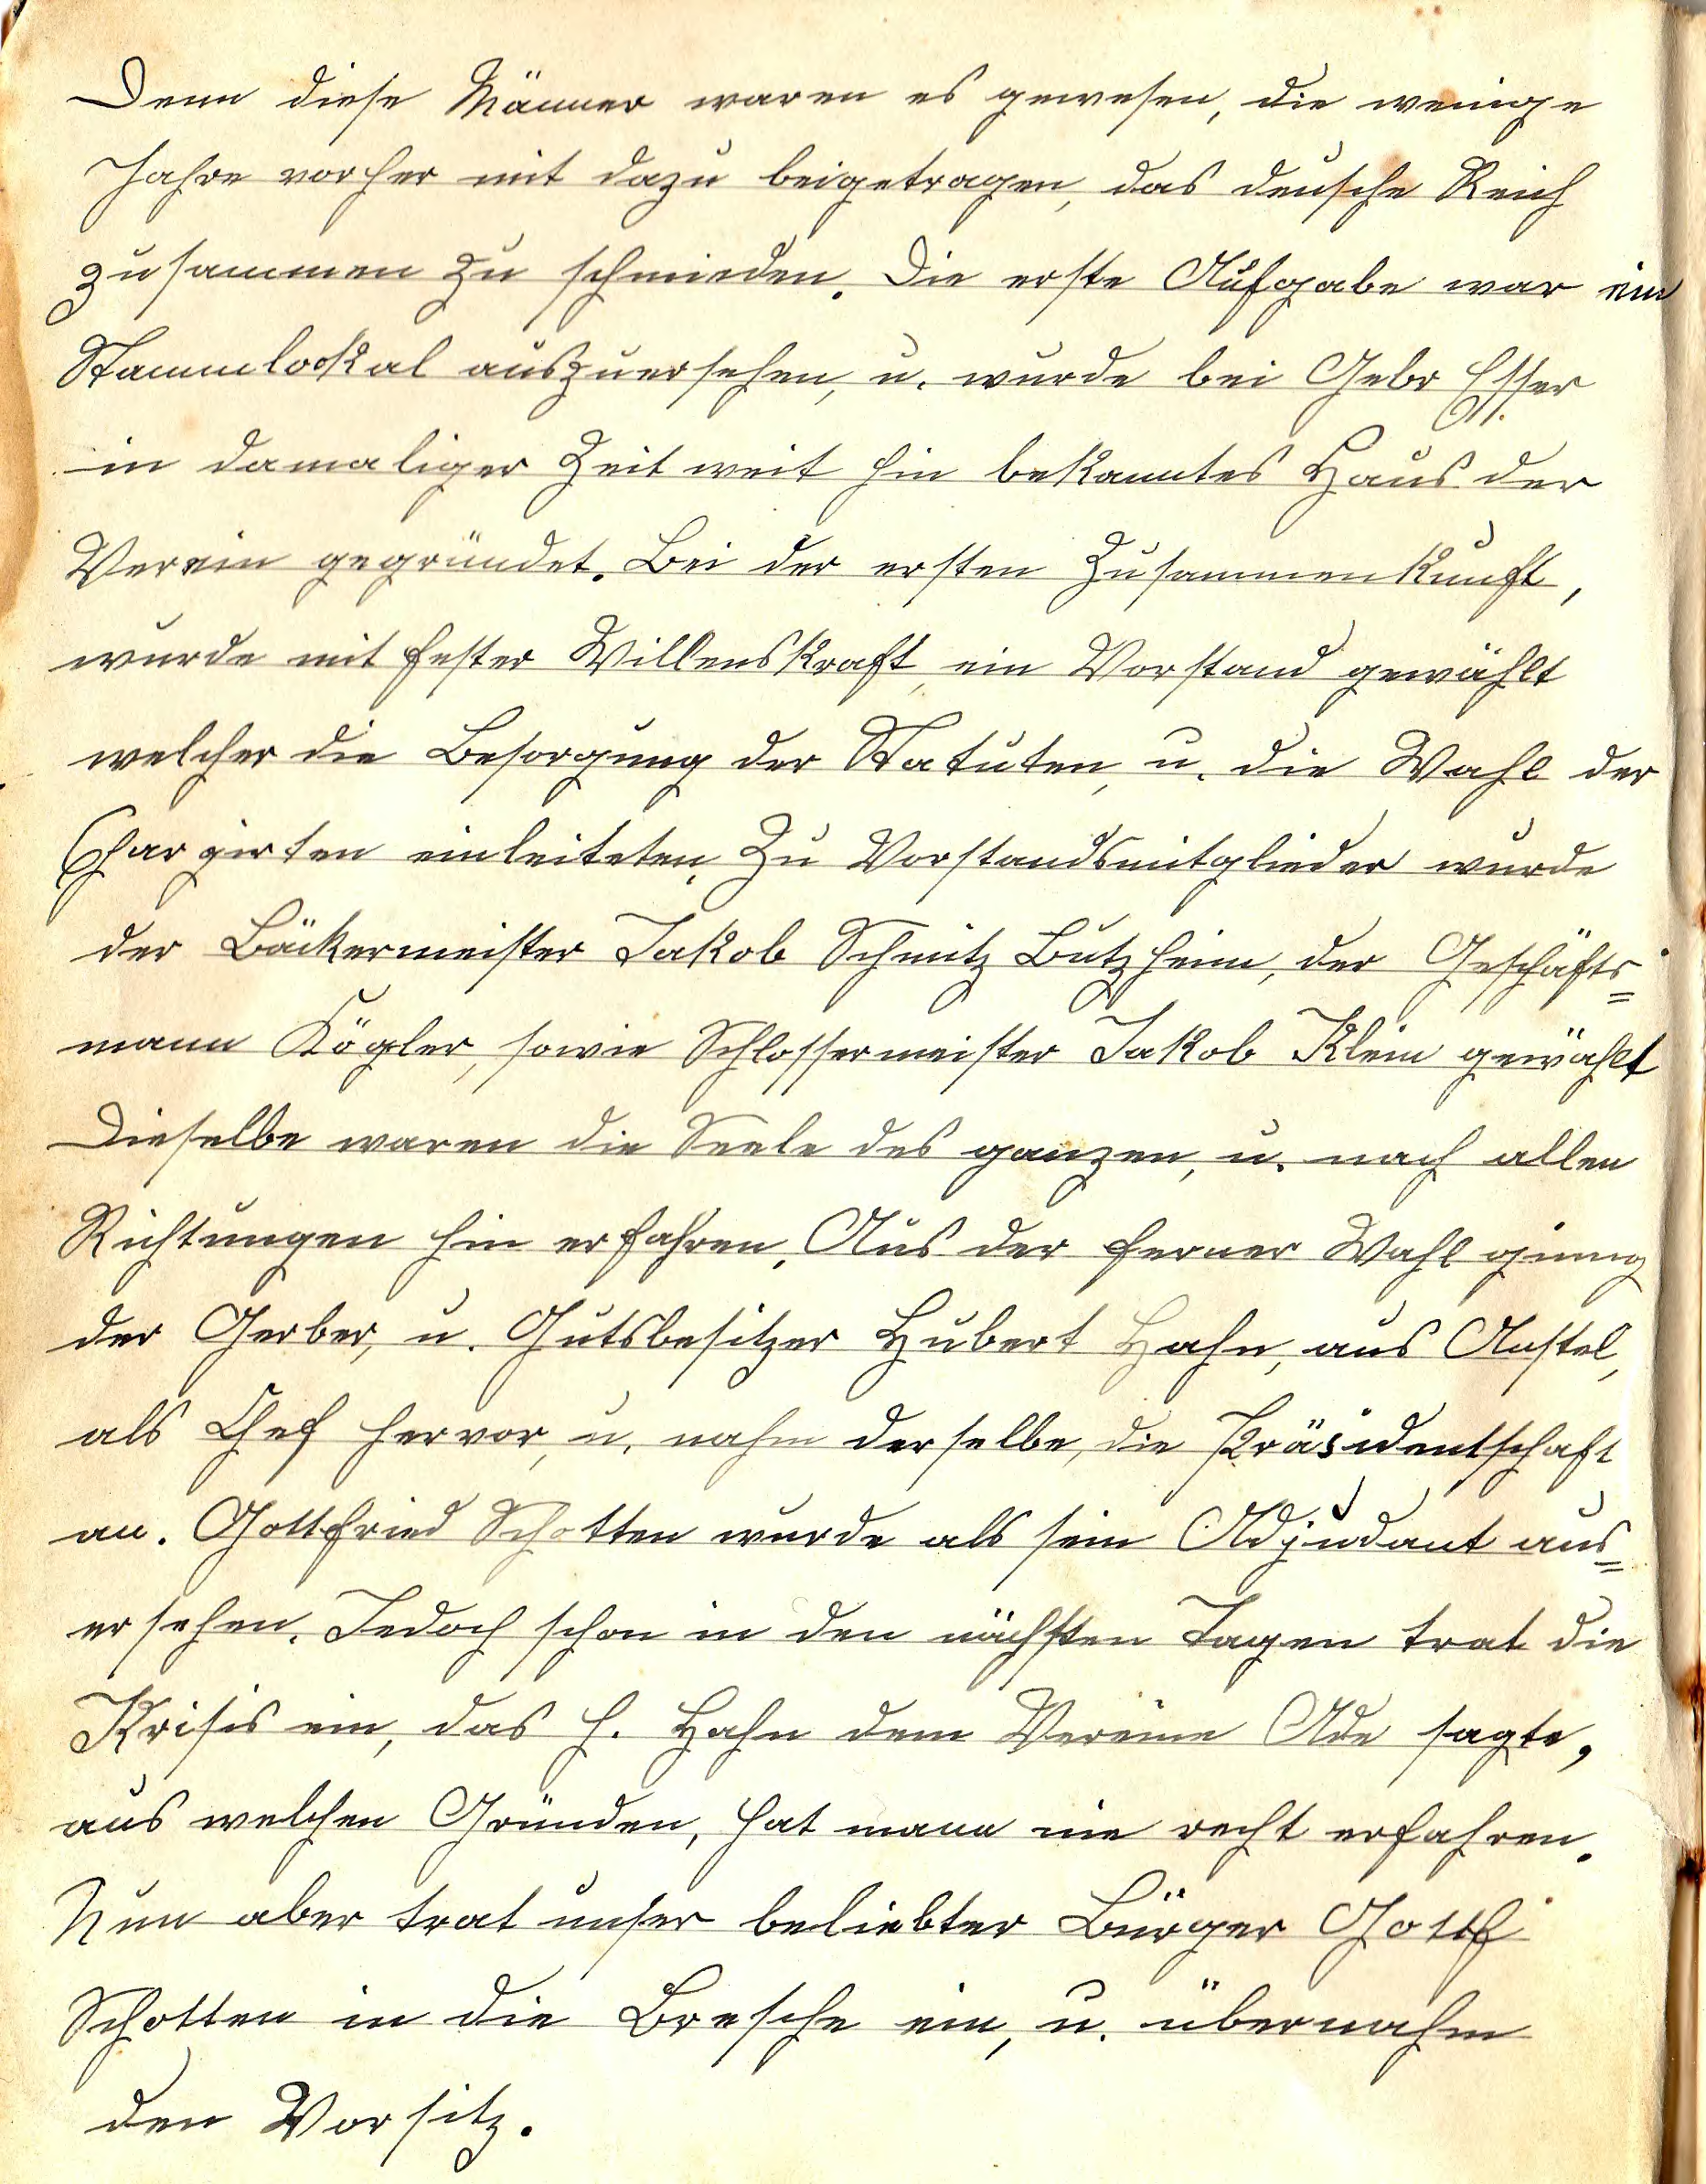 Denn diese Männer waren es gewesen, die wenige
Jahre vorher mit dazu beigetragen, das deusche Reich
zusammen zu schmieden. Die erste Aufgabe war ein
Stammlockal auszuersehen, u. wurde bei Gebr Esser
in damaliger Zeit weit hin bekanntes Haus der
Verein gegründet. Bei der ersten Zusammenkunft,
wurde mit fester Willenskraft, ein Vorstand gewählt
welcher die Besorgung der Statuten, u. die Wahl der
Chargirten einleiteten. Zu Vorstandsmitglieder wurde
der Bäckermeister Jakob Schmitz Butzheim, der Geschäfts=
mann Kögler, sowie Schlossermeister Jakob Klein gewählt
Dieselbe waren die Seele des ganzen, u. nach allen
Richtungen hin erfahren. Aus der ferner Wahl ginng
der Gerber, u. Gutsbesitzer Hubert Hahn, aus Anstel,
als Chef hervor, u. nahm derselbe, die Präsidentschaft
an. Gottfried Schotten wurde als sein Adjudant aus=
ersehen. Jedoch schon in den nächsten Tagen trat die
Krisis ein, das H. Hahn dem Vereine Ade sagte,
aus welchen Gründen, hat mann nie recht erfahren.
Nun aber trat unser beliebter Bürger Gottf
Schotten in die Bresche ein, u. übernahm
den Vorsitz.